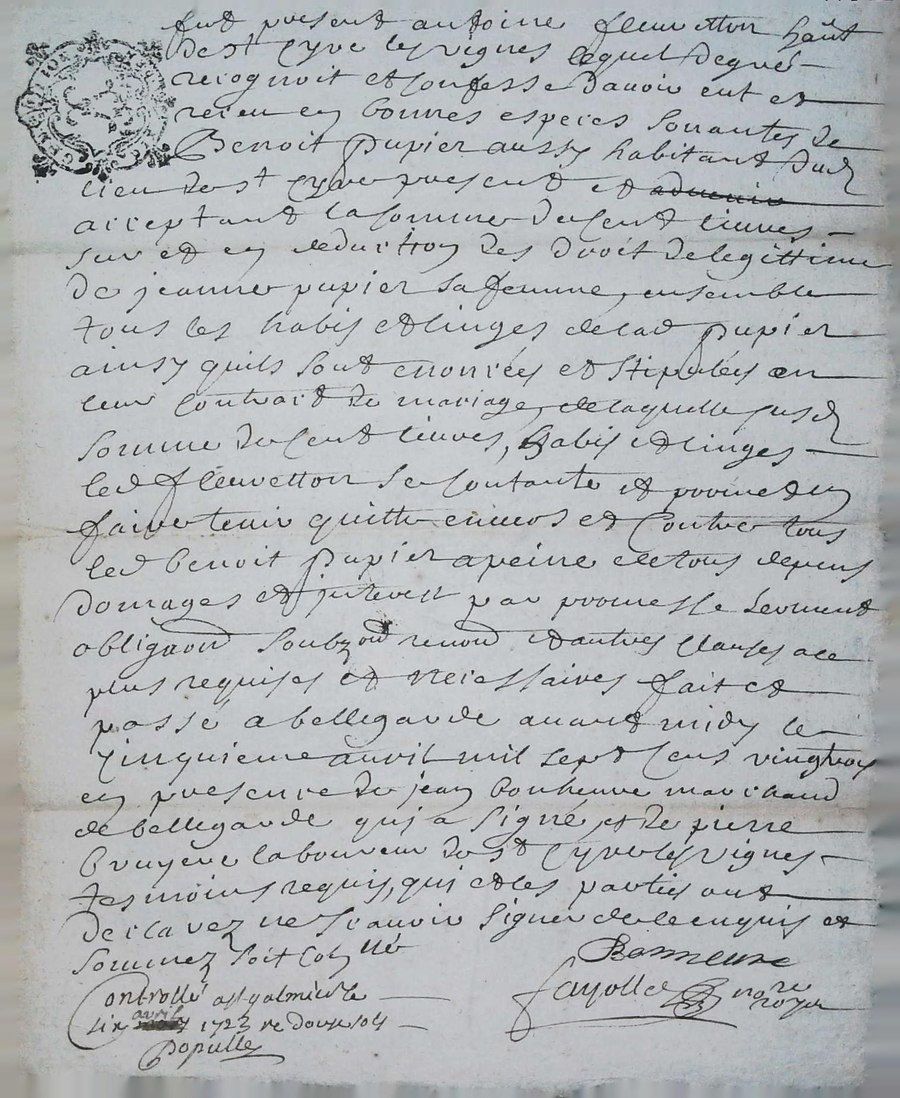 fut present antoine fleuvetton habt
de st Cyre les vignes lequel de gré
recognoit et confesse d'avoir eut et
receu en bonnes especes sonnantes de
Benoit Pupier aussy habitant dud
lieu de st Cyre present et advenir
acceptant la somme de cent livres
sur et en deduction des droit de legittime
de jeanne pupier sa femme, ensemble
tous les habis et linges de lad pupier
ainsy quils sont enoncées et stipulés en
leur contract de mariage, de laquelle susd
somme de cent livres, habis et linges
led fleuvetton se contante et promed en
faire tenir quitte envers et contre tous
led benoit pupier a peine de tous depens
domages et interest par promesse serment
obligaon soubzon renon et autres clauses a ce
plus requises et necessaires fait et
passé a bellegarde avant midy le
cinquieme avril mil sept cens vingtrois
en presence de jean bonheure marchand
de bellegarde qui a signé, et de pierre
bruyere laboureur de st Cyre les vignes
tesmoins requis, qui et les parties ont
declarez ne scavoir signer de ce enquis et
sommez soit Collé
Bonneure
Controllé a st galmier le
fayolle nore royer
six avril 1723 re douze sols
Populle